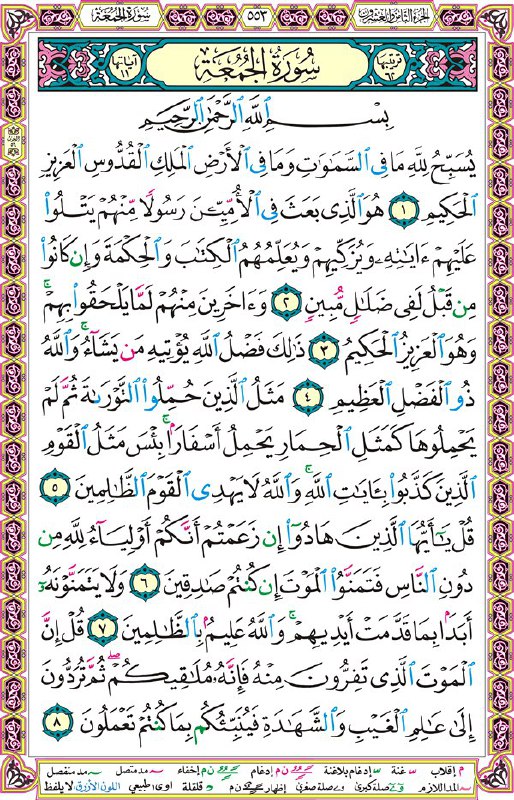 الجزء الثامن والعشرون ٥٥٣ سورة الجمعة
ترتيبها ٦٢ سُورَةُ الجُمُعَة آياتها ١١
بِسْمِ ٱللَّهِ ٱلرَّحْمَٰنِ ٱلرَّحِيمِ
يُسَبِّحُ لِلَّهِ مَا فِى ٱلسَّمَٰوَٰتِ وَمَا فِى ٱلْأَرْضِ ٱلْمَلِكِ ٱلْقُدُّوسِ ٱلْعَزِيزِ
ٱلْحَكِيمِ ١ هُوَ ٱلَّذِى بَعَثَ فِى ٱلْأُمِّيِّـۧنَ رَسُولًا مِّنْهُمْ يَتْلُوا۟
عَلَيْهِمْ ءَايَٰتِهِۦ وَيُزَكِّيهِمْ وَيُعَلِّمُهُمُ ٱلْكِتَٰبَ وَٱلْحِكْمَةَ وَإِن كَانُوا۟
مِن قَبْلُ لَفِى ضَلَٰلٍ مُّبِينٍ ٢ وَءَاخَرِينَ مِنْهُمْ لَمَّا يَلْحَقُوا۟ بِهِمْ ۚ
وَهُوَ ٱلْعَزِيزُ ٱلْحَكِيمُ ٣ ذَٰلِكَ فَضْلُ ٱللَّهِ يُؤْتِيهِ مَن يَشَآءُ ۚ وَٱللَّهُ
ذُو ٱلْفَضْلِ ٱلْعَظِيمِ ٤ مَثَلُ ٱلَّذِينَ حُمِّلُوا۟ ٱلتَّوْرَىٰةَ ثُمَّ لَمْ
يَحْمِلُوهَا كَمَثَلِ ٱلْحِمَارِ يَحْمِلُ أَسْفَارًۢا ۚ بِئْسَ مَثَلُ ٱلْقَوْمِ
ٱلَّذِينَ كَذَّبُوا۟ بِـَٔايَٰتِ ٱللَّهِ ۚ وَٱللَّهُ لَا يَهْدِى ٱلْقَوْمَ ٱلظَّٰلِمِينَ ٥
قُلْ يَٰٓأَيُّهَا ٱلَّذِينَ هَادُوٓا۟ إِن زَعَمْتُمْ أَنَّكُمْ أَوْلِيَآءُ لِلَّهِ مِن
دُونِ ٱلنَّاسِ فَتَمَنَّوُا۟ ٱلْمَوْتَ إِن كُنتُمْ صَٰدِقِينَ ٦ وَلَا يَتَمَنَّوْنَهُۥٓ
أَبَدًۢا بِمَا قَدَّمَتْ أَيْدِيهِمْ ۚ وَٱللَّهُ عَلِيمٌۢ بِٱلظَّٰلِمِينَ ٧ قُلْ إِنَّ
ٱلْمَوْتَ ٱلَّذِى تَفِرُّونَ مِنْهُ فَإِنَّهُۥ مُلَٰقِيكُمْ ۖ ثُمَّ تُرَدُّونَ
إِلَىٰ عَٰلِمِ ٱلْغَيْبِ وَٱلشَّهَٰدَةِ فَيُنَبِّئُكُم بِمَا كُنتُمْ تَعْمَلُونَ ٨
م إقلاب غنة إدغام بلاغنة ن م إدغام ن م إخفاء مد متصل مد منفصل
المد اللازم صلة كبرى صلة صغرى إظهار ن م قلقلة اوى طبيعي اللون الأزرق لا يلفظ